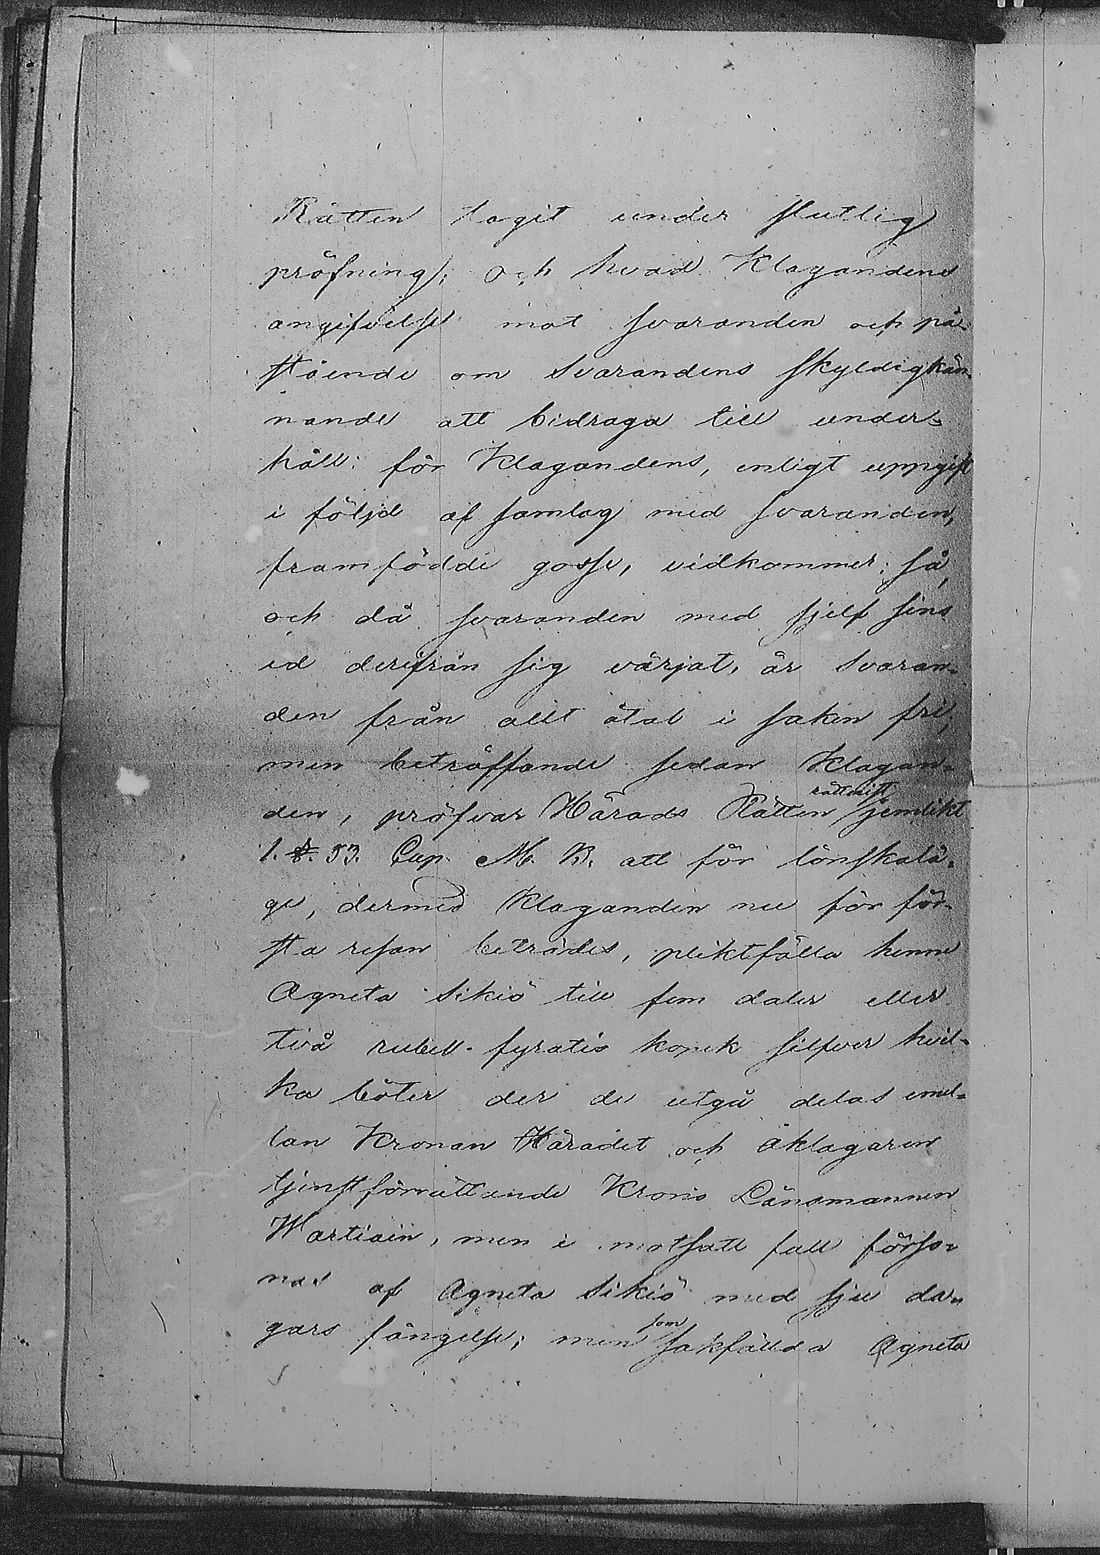 Rätten tagit under slutlig
pröfning; och hvad Klagandens
angifvelse mot svaranden och på-
stående om svarandens skyldigkän-
nande att bidraga till under-
håll för Klagandens, enligt uppgift
i följd af samlag med svaranden,
framfödde gosse, vidkommer; så,
och då svaranden med sjelf sins
ed derifrån sig värjat, är svaran-
den från allt åtal i saken fri;
men beträffande sedan Klagan-
den, pröfvar Härads Rätten rättvist jemlikt
1. §. 53. Cap. M. B. att för lönskalä-
ge, dermed Klaganden nu för för-
sta resan beträdes, pliktfälla henne
Agneta Sikiö till fem daler eller
två rubel fyratio kopek silfver hvil-
ka böter der de utgå delas emel-
lan Kronan Häradet och åklagaren
tjenstförrättande Krono Länsmannen
Wartiain, men i motsatt fall förso-
nas af Agneta Sikiö med sju da-
gars fängelse; men som sakfällda Agneta